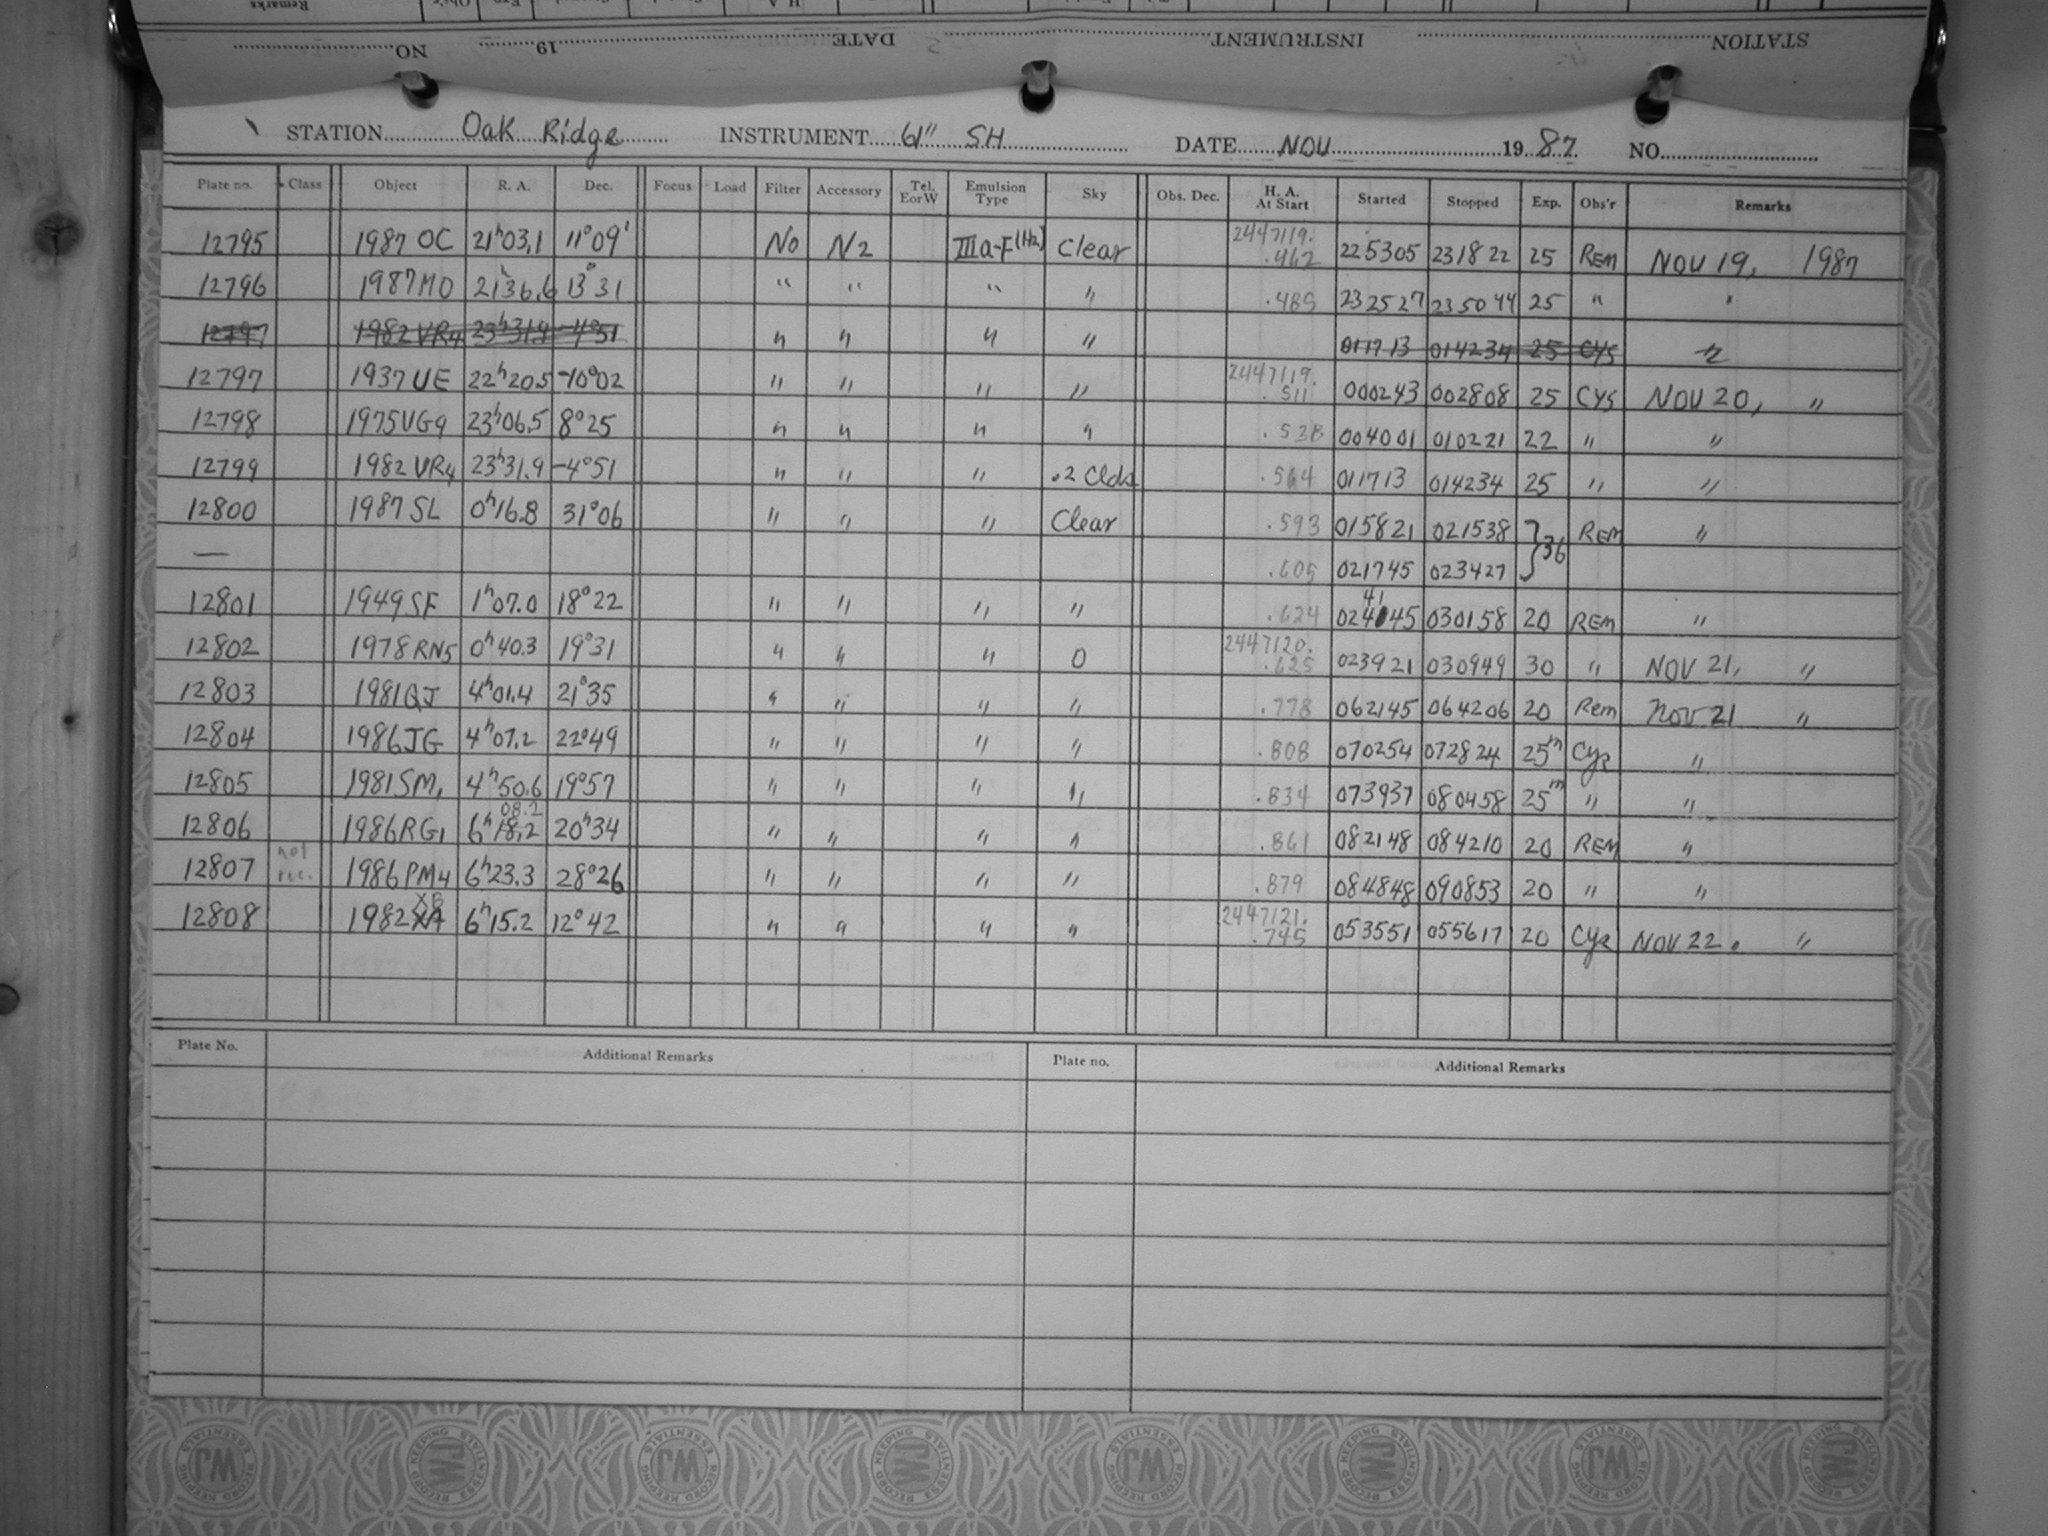 STATION Oak Ridge INSTRUMENT 61" SH DATE NOV 1987 NO.
Plate no. Class Object R. A. Dec. Focus Load Filter Accessory Tel. EorW Emulsion Type Sky Obs. Dec. H. A. At Start Started Stopped Exp. Obs'r Remarks
12795 1987 OC 21h03.1 11°09' No N2 IIIa-F(H2) Clear 2447119. .462 225305 231822 25 REM NOV 19, 1987
12796 1987MO 21h36.6 13°31 " " " " .485 232527 235044 25 " "
12797 1982 VR4 23h31.9 -4°51 " " " " 011713 014234 25 CYS "
12797 1937 UE 22h20.5 -10°02 " " " " 2447119. .511 000243 002808 25 CYS NOV 20, "
12798 1975VG9 23h06.5 8°25 " " " " .538 004001 010221 22 " "
12799 1982 VR4 23h31.9 -4°51 " " " .2 Clds .564 011713 014234 25 " "
12800 1987 SL 0h16.8 31°06 " " " Clear .593 015821 021538 } 36 REM "
— .605 021745 023427
12801 1949SF 1h07.0 18°22 " " " " .624 024145 41 030158 20 REM "
12802 1978RN5 0h40.3 19°31 " " " 0 2447120. .625 023921 030949 30 " NOV 21, "
12803 1981QJ 4h01.4 21°35 " " " " .778 062145 064206 20 Rem Nov 21 "
12804 1986JG 4h07.2 22°49 " " " " .808 070254 072824 25m Cys "
12805 1981SM1 4h50.6 19°57 " " " " .834 073937 080458 25m " "
12806 1986RG1 6h18.2 08.2 20h34 " " " " .861 082148 084210 20 REM "
12807 not rec. 1986PM4 6h23.3 28°26 " " " " .879 084848 090853 20 " "
12808 1982XA XB 6h15.2 12°42 " " " " 2447121. .745 053551 055617 20 Cys NOV 22. "
Plate No. Additional Remarks Plate no. Additional Remarks